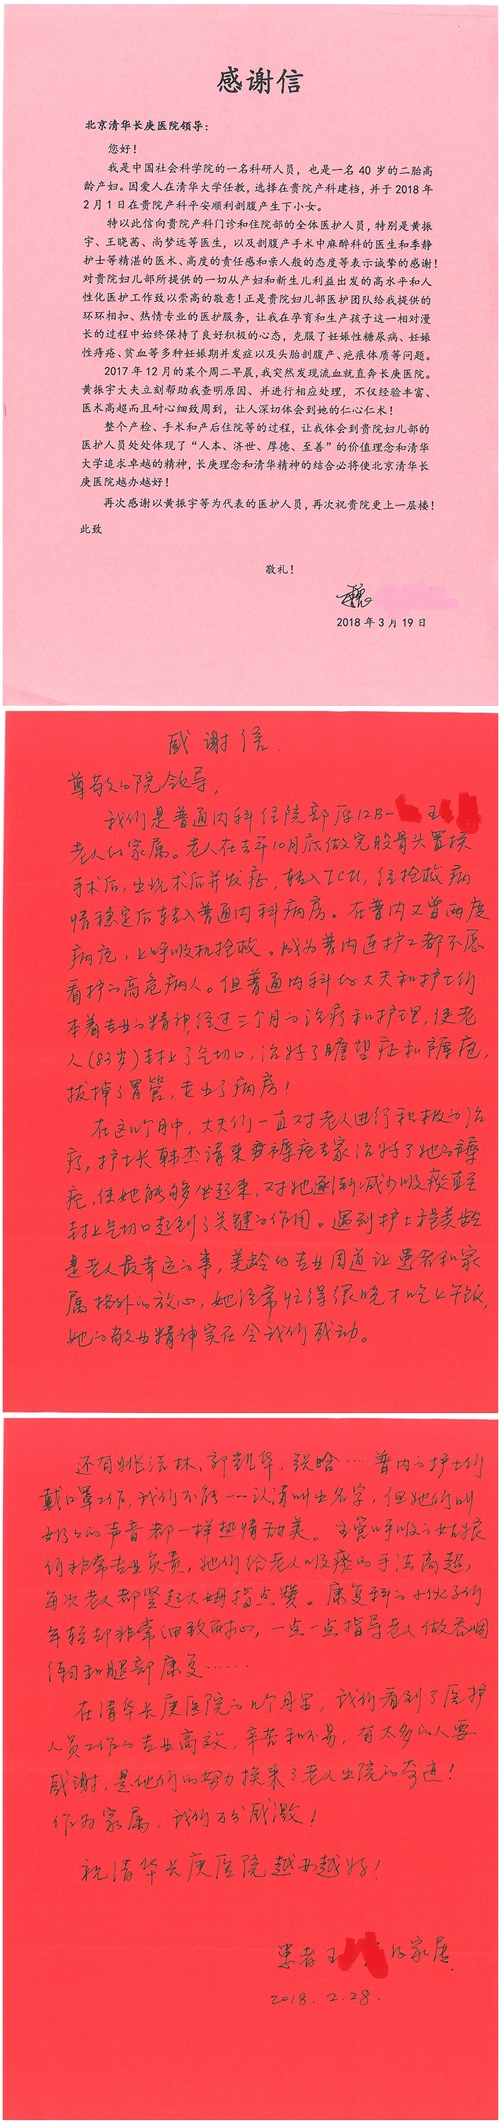 感谢信
北京清华长庚医院领导：
您好！
我是中国社会科学院的一名科研人员，也是一名 40 岁的二胎高
龄产妇。因爱人在清华大学任教，选择在贵院产科建档，并于 2018 年
2 月 1 日在贵院产科平安顺利剖腹产生下小女。
特以此信向贵院产科门诊和住院部的全体医护人员，特别是黄振
宇、王晓茜、尚梦远等医生，以及剖腹产手术中麻醉科的医生和季静
护士等精湛的医术、高度的责任感和亲人般的态度等表示诚挚的感谢！
对贵院妇儿部所提供的一切从产妇和新生儿利益出发的高水平和人
性化医护工作致以崇高的敬意！正是贵院妇儿部医护团队给我提供的
环环相扣、热情专业的医护服务，让我在孕育和生产孩子这一相对漫
长的过程中始终保持了良好积极的心态，克服了妊娠性糖尿病、妊娠
性痔疮、贫血等多种妊娠期并发症以及头胎剖腹产、疤痕体质等问题。
2017 年 12 月的某个周二早晨，我突然发现流血就直奔长庚医院。
黄振宇大夫立刻帮助我查明原因、并进行相应处理，不仅经验丰富、
医术高超而且耐心细致周到，让人深切体会到她的仁心仁术！
整个产检、手术和产后住院等的过程，让我体会到贵院妇儿部的
医护人员处处体现了“人本、济世、厚德、至善”的价值理念和清华
大学追求卓越的精神，长庚理念和清华精神的结合必将使北京清华长
庚医院越办越好！
再次感谢以黄振宇等为代表的医护人员，再次祝贵院更上一层楼！
此致
敬礼！
2018 年 3 月 19 日
感谢信
尊敬的院领导，
我们是普通内科住院部原12B- 王
老人的家属。老人在去年10月底做完股骨头置换
手术后，出现术后并发症，转入ICU，经抢救病
情稳定后转入普通内科病房。在普内又曾两度
病危，上呼吸机抢救。成为普内连护工都不愿
看护的高危病人。但普通内科的大夫和护士们
本着专业的精神，经过三个月的治疗和护理，使老
人（83岁）封上了气切口，治好了谵妄症和褥疮，
拔掉了胃管，走出了病房！
在这个月中，大夫们一直对老人进行积极的治
疗，护士长韩杰请来褥疮专家治好了她的褥
疮，使她能够坐起来，对她逐渐减少吸痰直至
封上气切口起到了关键的作用。遇到护士美龄
是老人最幸运的事，美龄的专业周道让患者和家
属格外的放心，她经常忙得很晚才吃上午饭，
她的敬业精神实在令我们感动。
还有姚洁林、郭凯华、张晗……普内的护士们
戴口罩工作，我们不能一一认清叫出名字，但她们叫
奶奶的声音都一样热情甜美。主管呼吸的姑娘
们非常专业负责，她们给老人吸痰的手法高超，
每次老人都竖起大姆指点赞。康复科的小伙子们
年轻却非常细致耐心，一点一点指导老人做吞咽
练习和腿部康复……
在清华长庚医院的个月里，我们看到了医护
人员工作的专业高效，辛苦和不易，有太多的人要
感谢，是他们的努力换来了老人出院的奇迹！
作为家属，我们万分感激！
祝清华长庚医院越办越好！
患者王 的家属
2018.2.28.